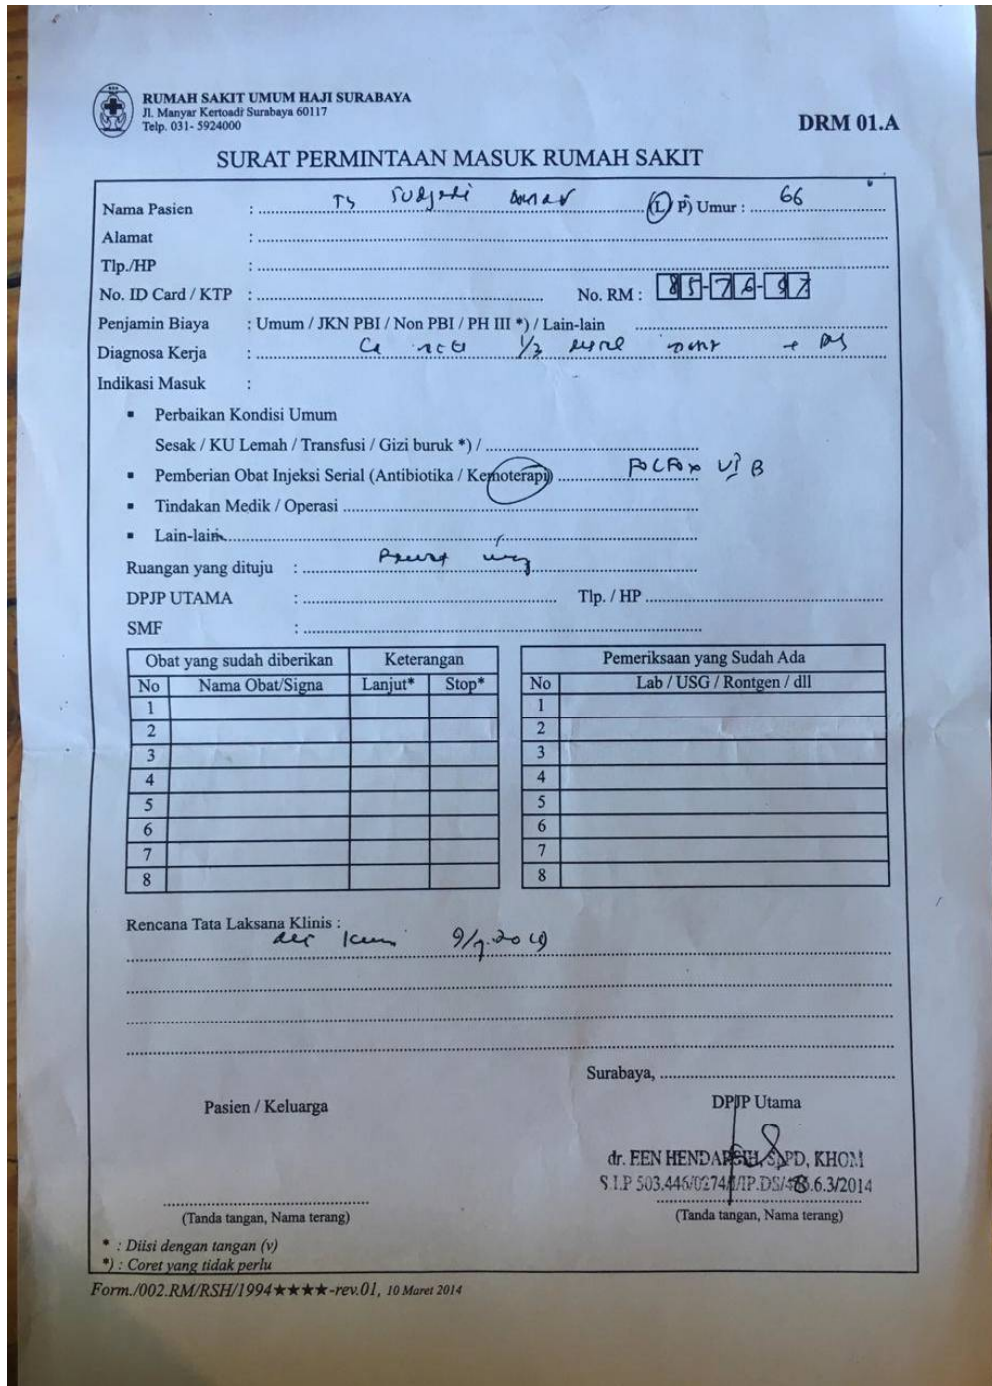 RUMAH SAKIT UMUM HAJI SURABAYA
Jl. Manyar Kertoadi Surabaya 60117
Telp. 031- 5924000
DRM 01.A
SURAT PERMINTAAN MASUK RUMAH SAKIT
Nama Pasien : (L P) Umur : 66
Alamat :
Tlp./HP :
No. ID Card / KTP : No. RM : 85-76-97
Penjamin Biaya : Umum / JKN PBI / Non PBI / PH III *) / Lain-lain
Diagnosa Kerja : Ca 1/3
Indikasi Masuk :
▪ Perbaikan Kondisi Umum
Sesak / KU Lemah / Transfusi / Gizi buruk *) /
▪ Pemberian Obat Injeksi Serial (Antibiotika / Kemoterapi)
▪ Tindakan Medik / Operasi
▪ Lain-lain
Ruangan yang dituju :
DPJP UTAMA : Tlp. / HP
SMF :
Obat yang sudah diberikan Keterangan
No Nama Obat/Signa Lanjut* Stop*
1
2
3
4
5
6
7
8
Pemeriksaan yang Sudah Ada
No Lab / USG / Rontgen / dll
1
2
3
4
5
6
7
8
Rencana Tata Laksana Klinis :
Surabaya,
Pasien / Keluarga DPJP Utama
dr. EEN HENDARSIH, SpPD, KHOM
(Tanda tangan, Nama terang) (Tanda tangan, Nama terang)
* : Diisi dengan tangan (v)
*) : Coret yang tidak perlu
Form./002.RM/RSH/1994★★★★-rev.01, 10 Maret 2014